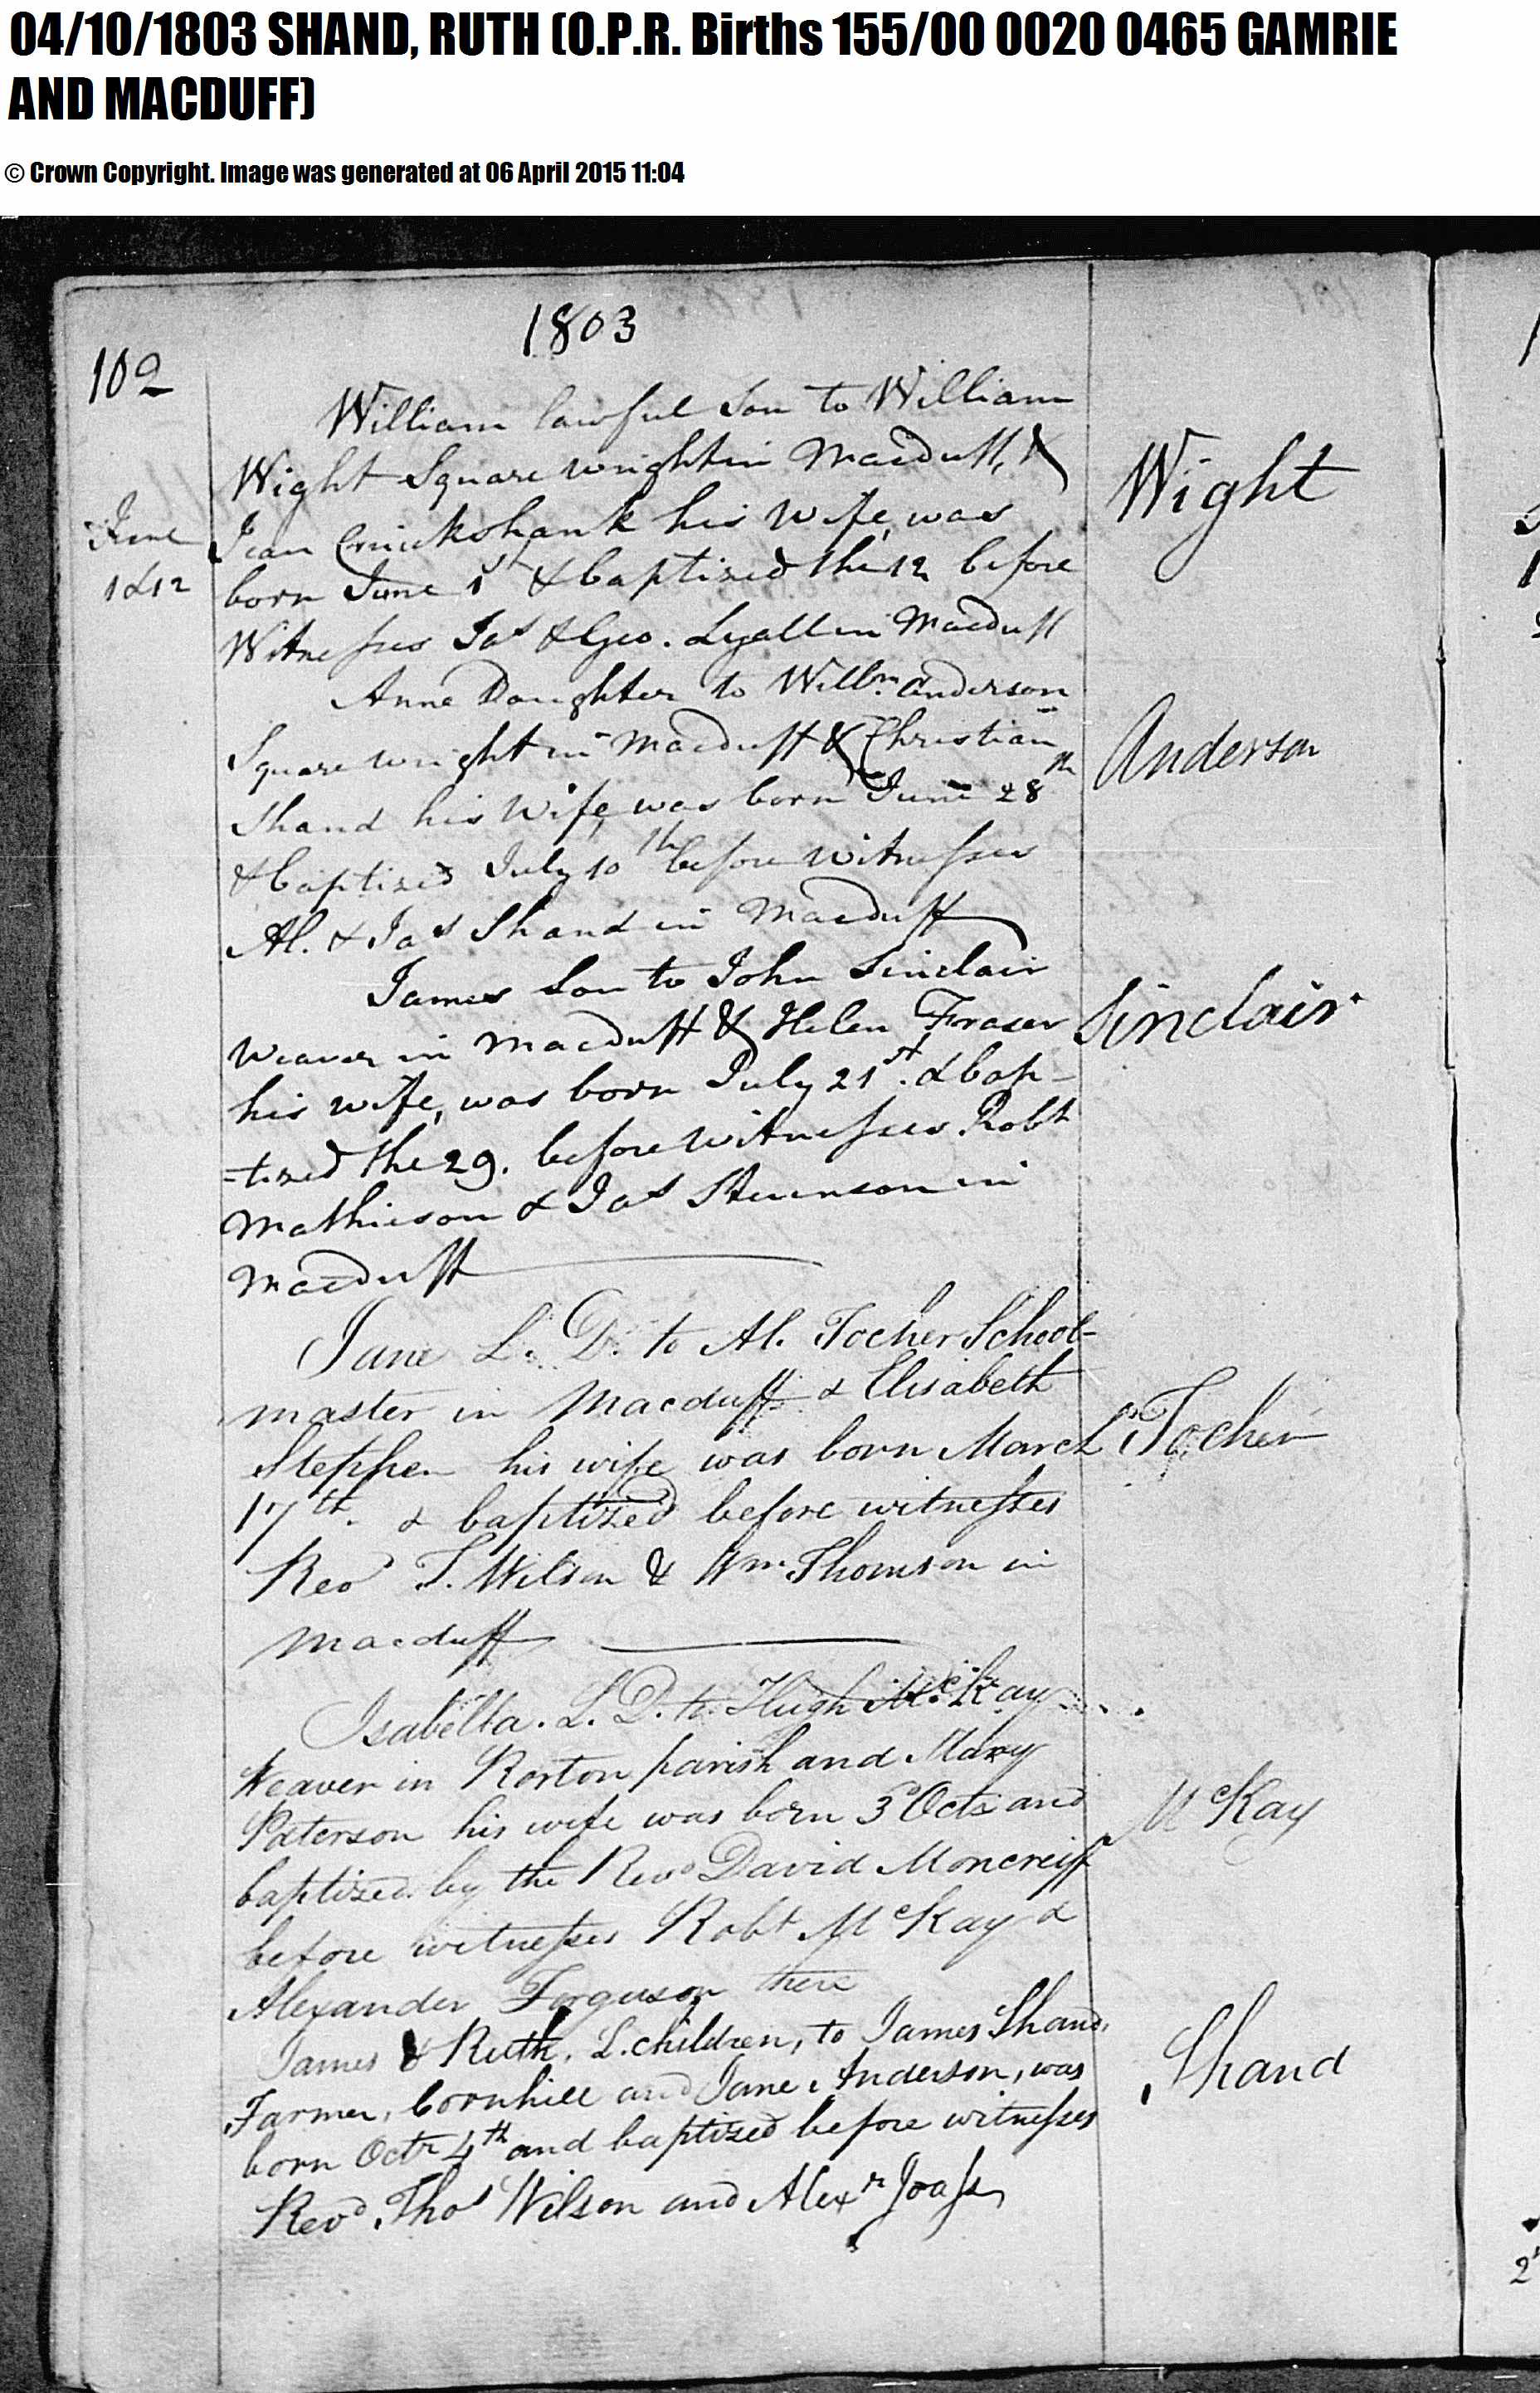 04/10/1803 SHAND, RUTH (O.P.R. Births 155/00 0020 0465 GAMRIE
AND MACDUFF)
© Crown Copyright. Image was generated at 06 April 2015 11:04
1803
102
William lawful Son to William
Wight Square wright in Macduff, &
Jean Cruickshank his Wife, was
born June 1st & baptized the 12 before
Witnesses Jas & Geo. Lyall in Macduff
June
1 & 12
Wight
Anne Daughter to Willm. Anderson
Square wright in Macduff & Christian
Shand his Wife, was born June 28th
& baptized July 10th before Witnesses
Al. & Jas Shand in Macduff
Anderson
James Son to John Sinclair
Weaver in Macduff & Helen Fraser
his wife, was born July 21st. & bap-
-tized the 29. before Witnesses Robt
Mathieson & Jas Stevenson in
Macduff
Sinclair
Jane L. D. to Al. Tocher School-
master in Macduff & Elisabeth
Stephen his wife was born March
17th. & baptized before witnesses
Revd T. Wilson & Wm. Thomson in
Macduff
Tocher
Isabella. L. D. to Hugh McKay
Weaver in parish and Mary
Paterson his wife was born 3d Octr and
baptized by the Revd David Moncreiff
before witnesses Robt McKay &
Alexander Ferguson there
McKay
James & Ruth. L. children, to James Shand,
Farmer, Cornhill and Jane Anderson, was
born Octr 4th and baptized before witnesses
Revd. Thos Wilson and Alexr Joass
Shand